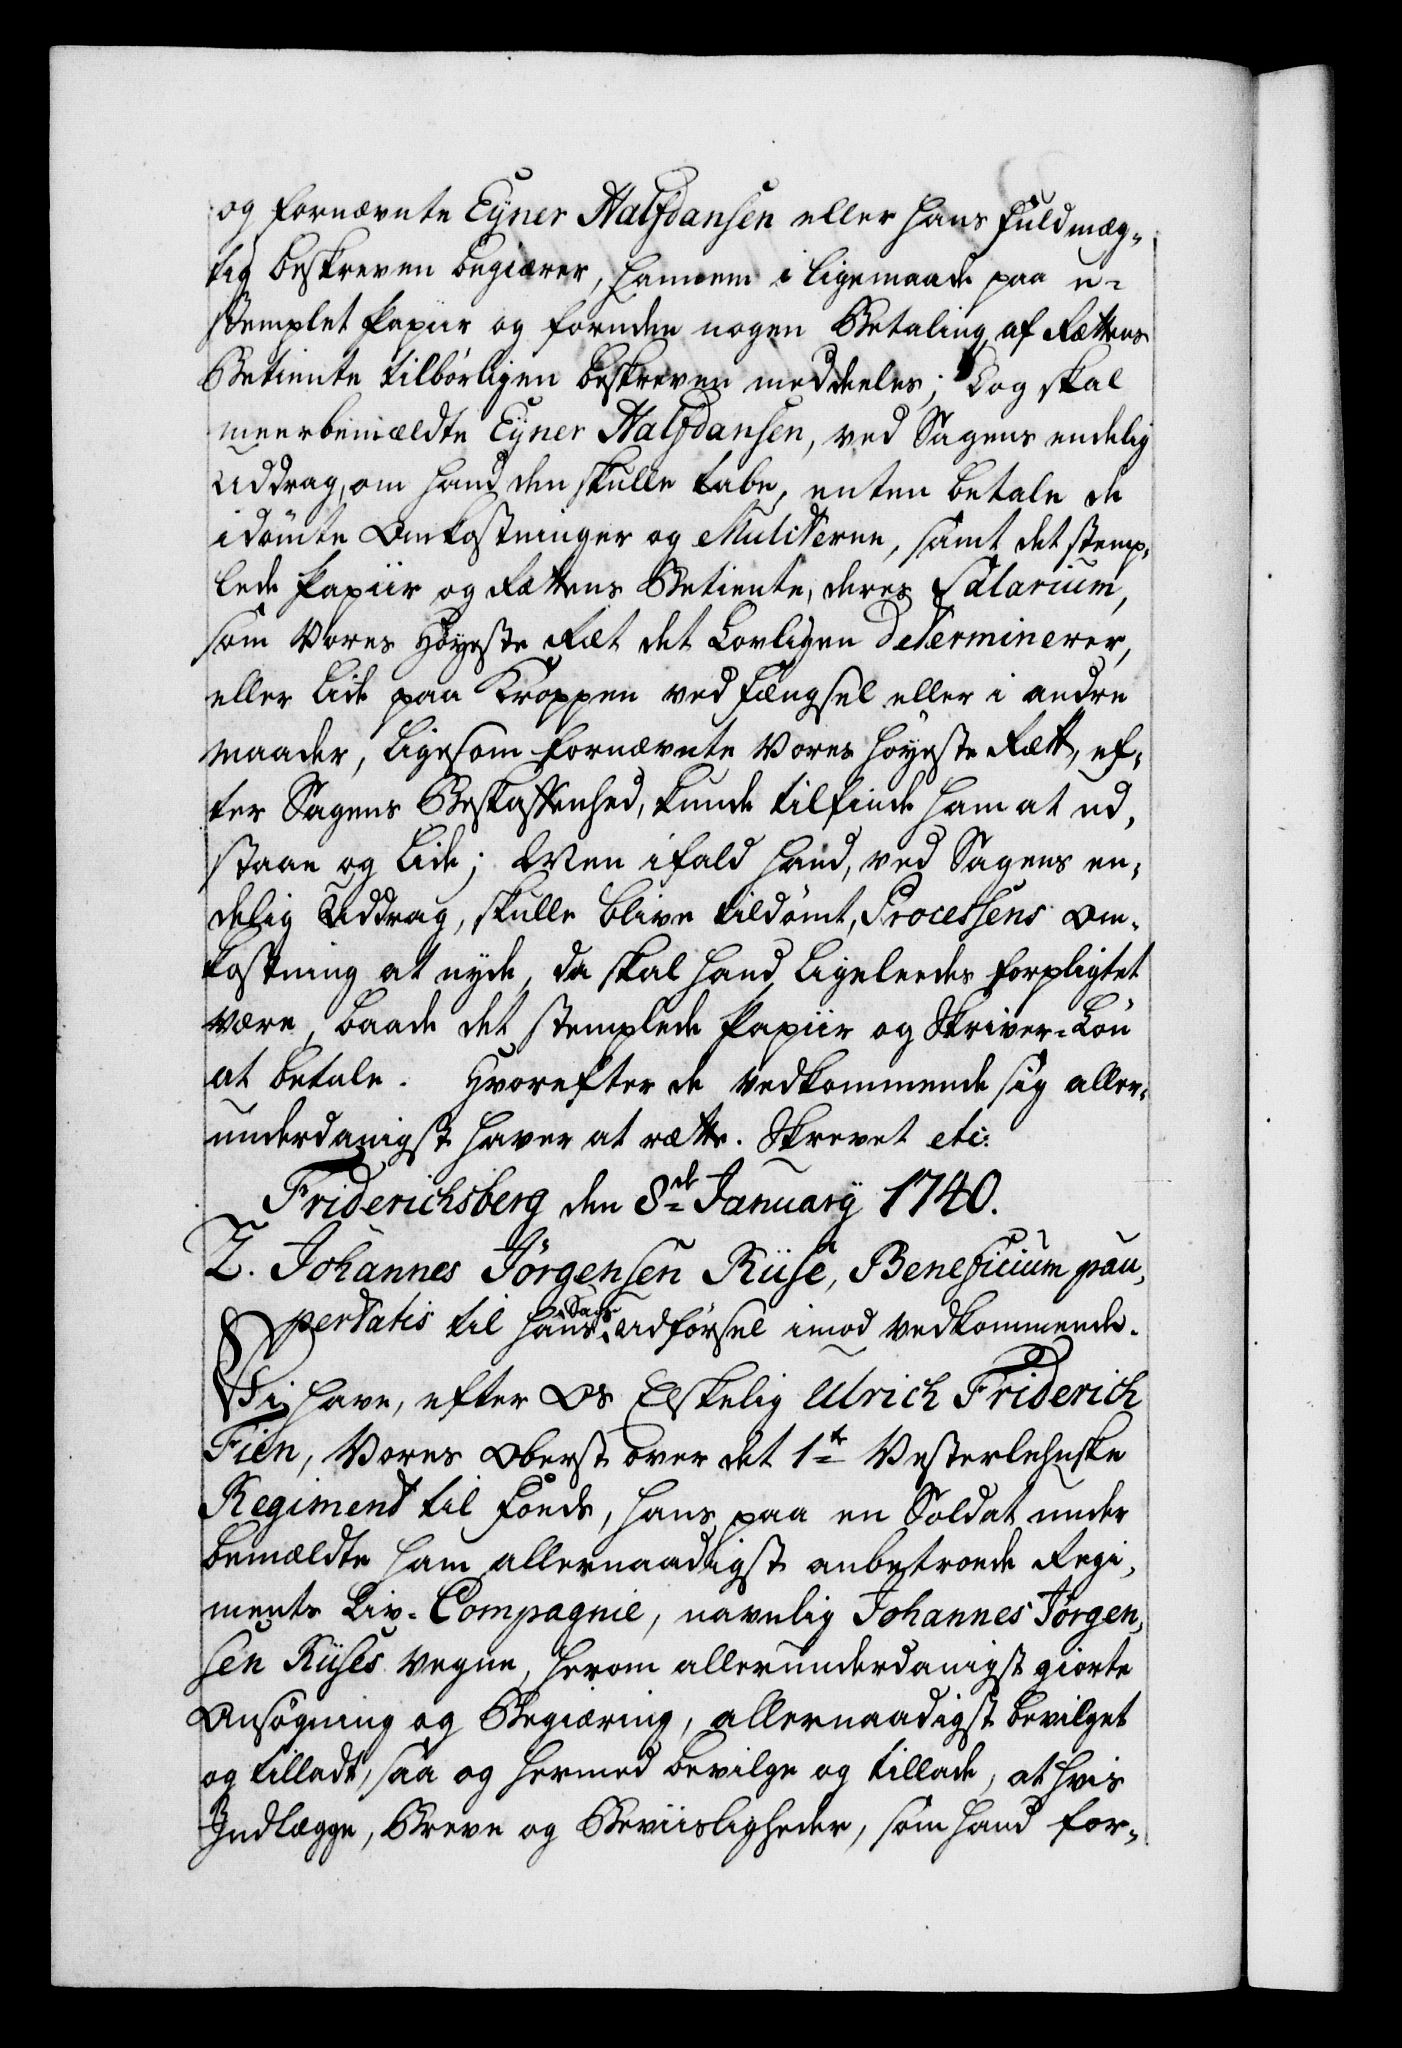 og fornævnte Eyner Halfdansen eller hans Fuldmæg-
tig beskreven begiærer, hannem i ligemaade paa u-
stemplet Papiir og foruden nogen Betaling af Rættens
Betiente tilbörligen beskreven meddeeles; Dog skal
meerbemældte Eyner Halfdansen, ved Sagens endelig
Uddrag, om hand den skulle tabe, enten betale de
idömte Omkostninger og Mulcterne, samt det stemp-
lede Papiir og Rættens Betiente, deres Salarium,
som Vores Höyeste Ræt det Lovligen determinerer,
eller lide paa Kroppen ved Fængsel eller i andre
maader, ligesom fornævnte Vores Höyeste Rætt, ef-
ter Sagens Beskaffenhed, kunde tilfinde ham at ud-
staae og lide; Men ifald hand, ved Sagens en-
delig Uddrag, skulle blive tildömt, Processens Om-
kostning at nyde, da skal hand ligeleedes forpligtet
være, baade det stemplede Papiir og Skriver-Lön
at betale. Hvorefter de vedkommende sig aller-
underdanigst haver at rætte. Skrevet etc:
Friderichsberg den 8de January 1740.
2. Johannes Jörgensen Riise, Beneficium pau-
pertatis til hans Sags Udförsel imod vedkommende.
Vi have, efter Os Elskelig Ulrich Friderich
Fien, Vores Oberst over det 1te Vesterlehnske
Regiment til Foeds, hans paa en Soldat under
bemældte ham allernaadigst anbetroede Regi-
ments Liv-Compagnie, navnlig Johannes Jörgen-
sen Riises vegne, herom allerunderdanigst giorte
Ansögning og Begiæring, allernaadigst bevilget
og tilladt, saa og hermed bevilge og tillade, at hvis
Indlægge, Breve og Beviisligheder, som hand for-